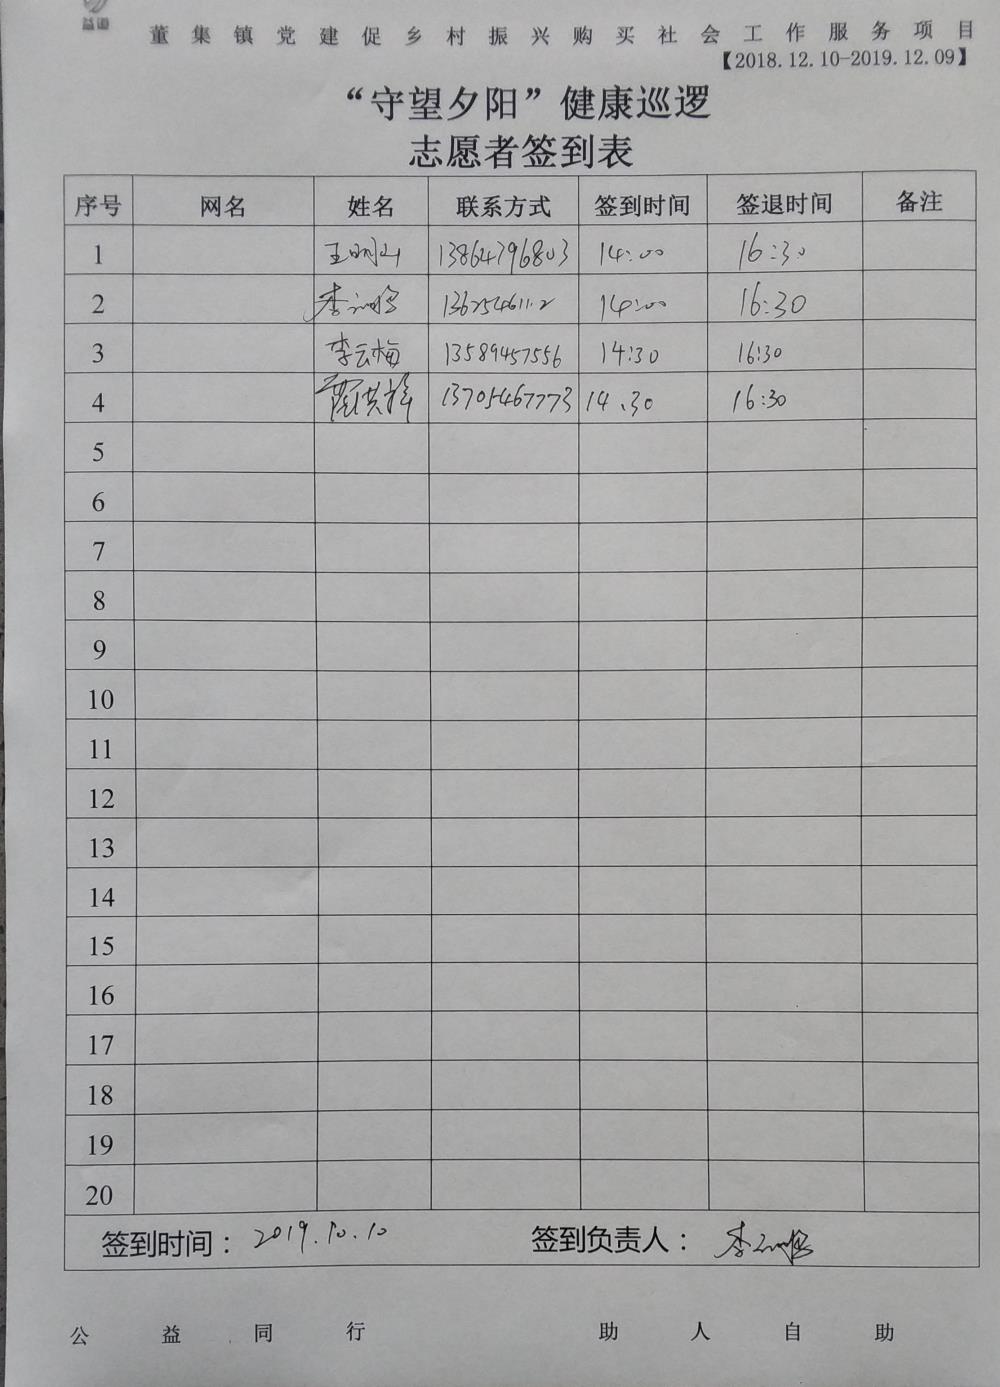 益道
董集镇党建促乡村振兴购买社会工作服务项目
【2018.12.10-2019.12.09】
“守望夕阳”健康巡逻
志愿者签到表
序号 网名 姓名 联系方式 签到时间 签退时间 备注
1 王明山 13864796803 14:00 16:30
2 李 14:00 16:30
3 李云梅 13589457556 14:30 16:30
4 13705467773 14.30 16:30
5
6
7
8
9
10
11
12
13
14
15
16
17
18
19
20
签到时间： 2019.10.10 签到负责人： 李
公益同行 助人自助